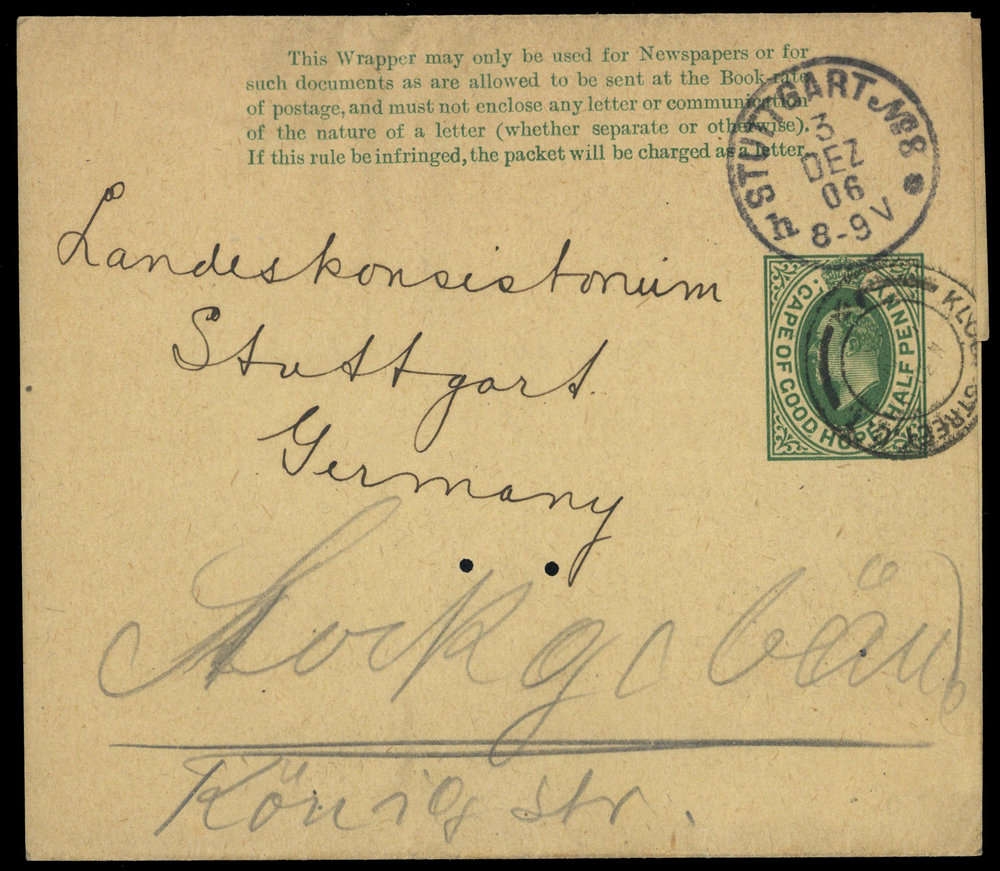 This Wrapper may only be used for Newspapers or for
such documents as are allowed to be sent at the Book-rate
of postage, and must not enclose any letter or communication
of the nature of a letter (whether separate or otherwise).
If this rule be infringed, the packet will be charged as a letter.
STUTTGART No8
3
DEZ
06
8-9V
h
Landeskonsistorium
Stuttgart
Germany
CAPE OF GOOD HOPE
HALFPENNY
KLOOF STREET
Königstr.